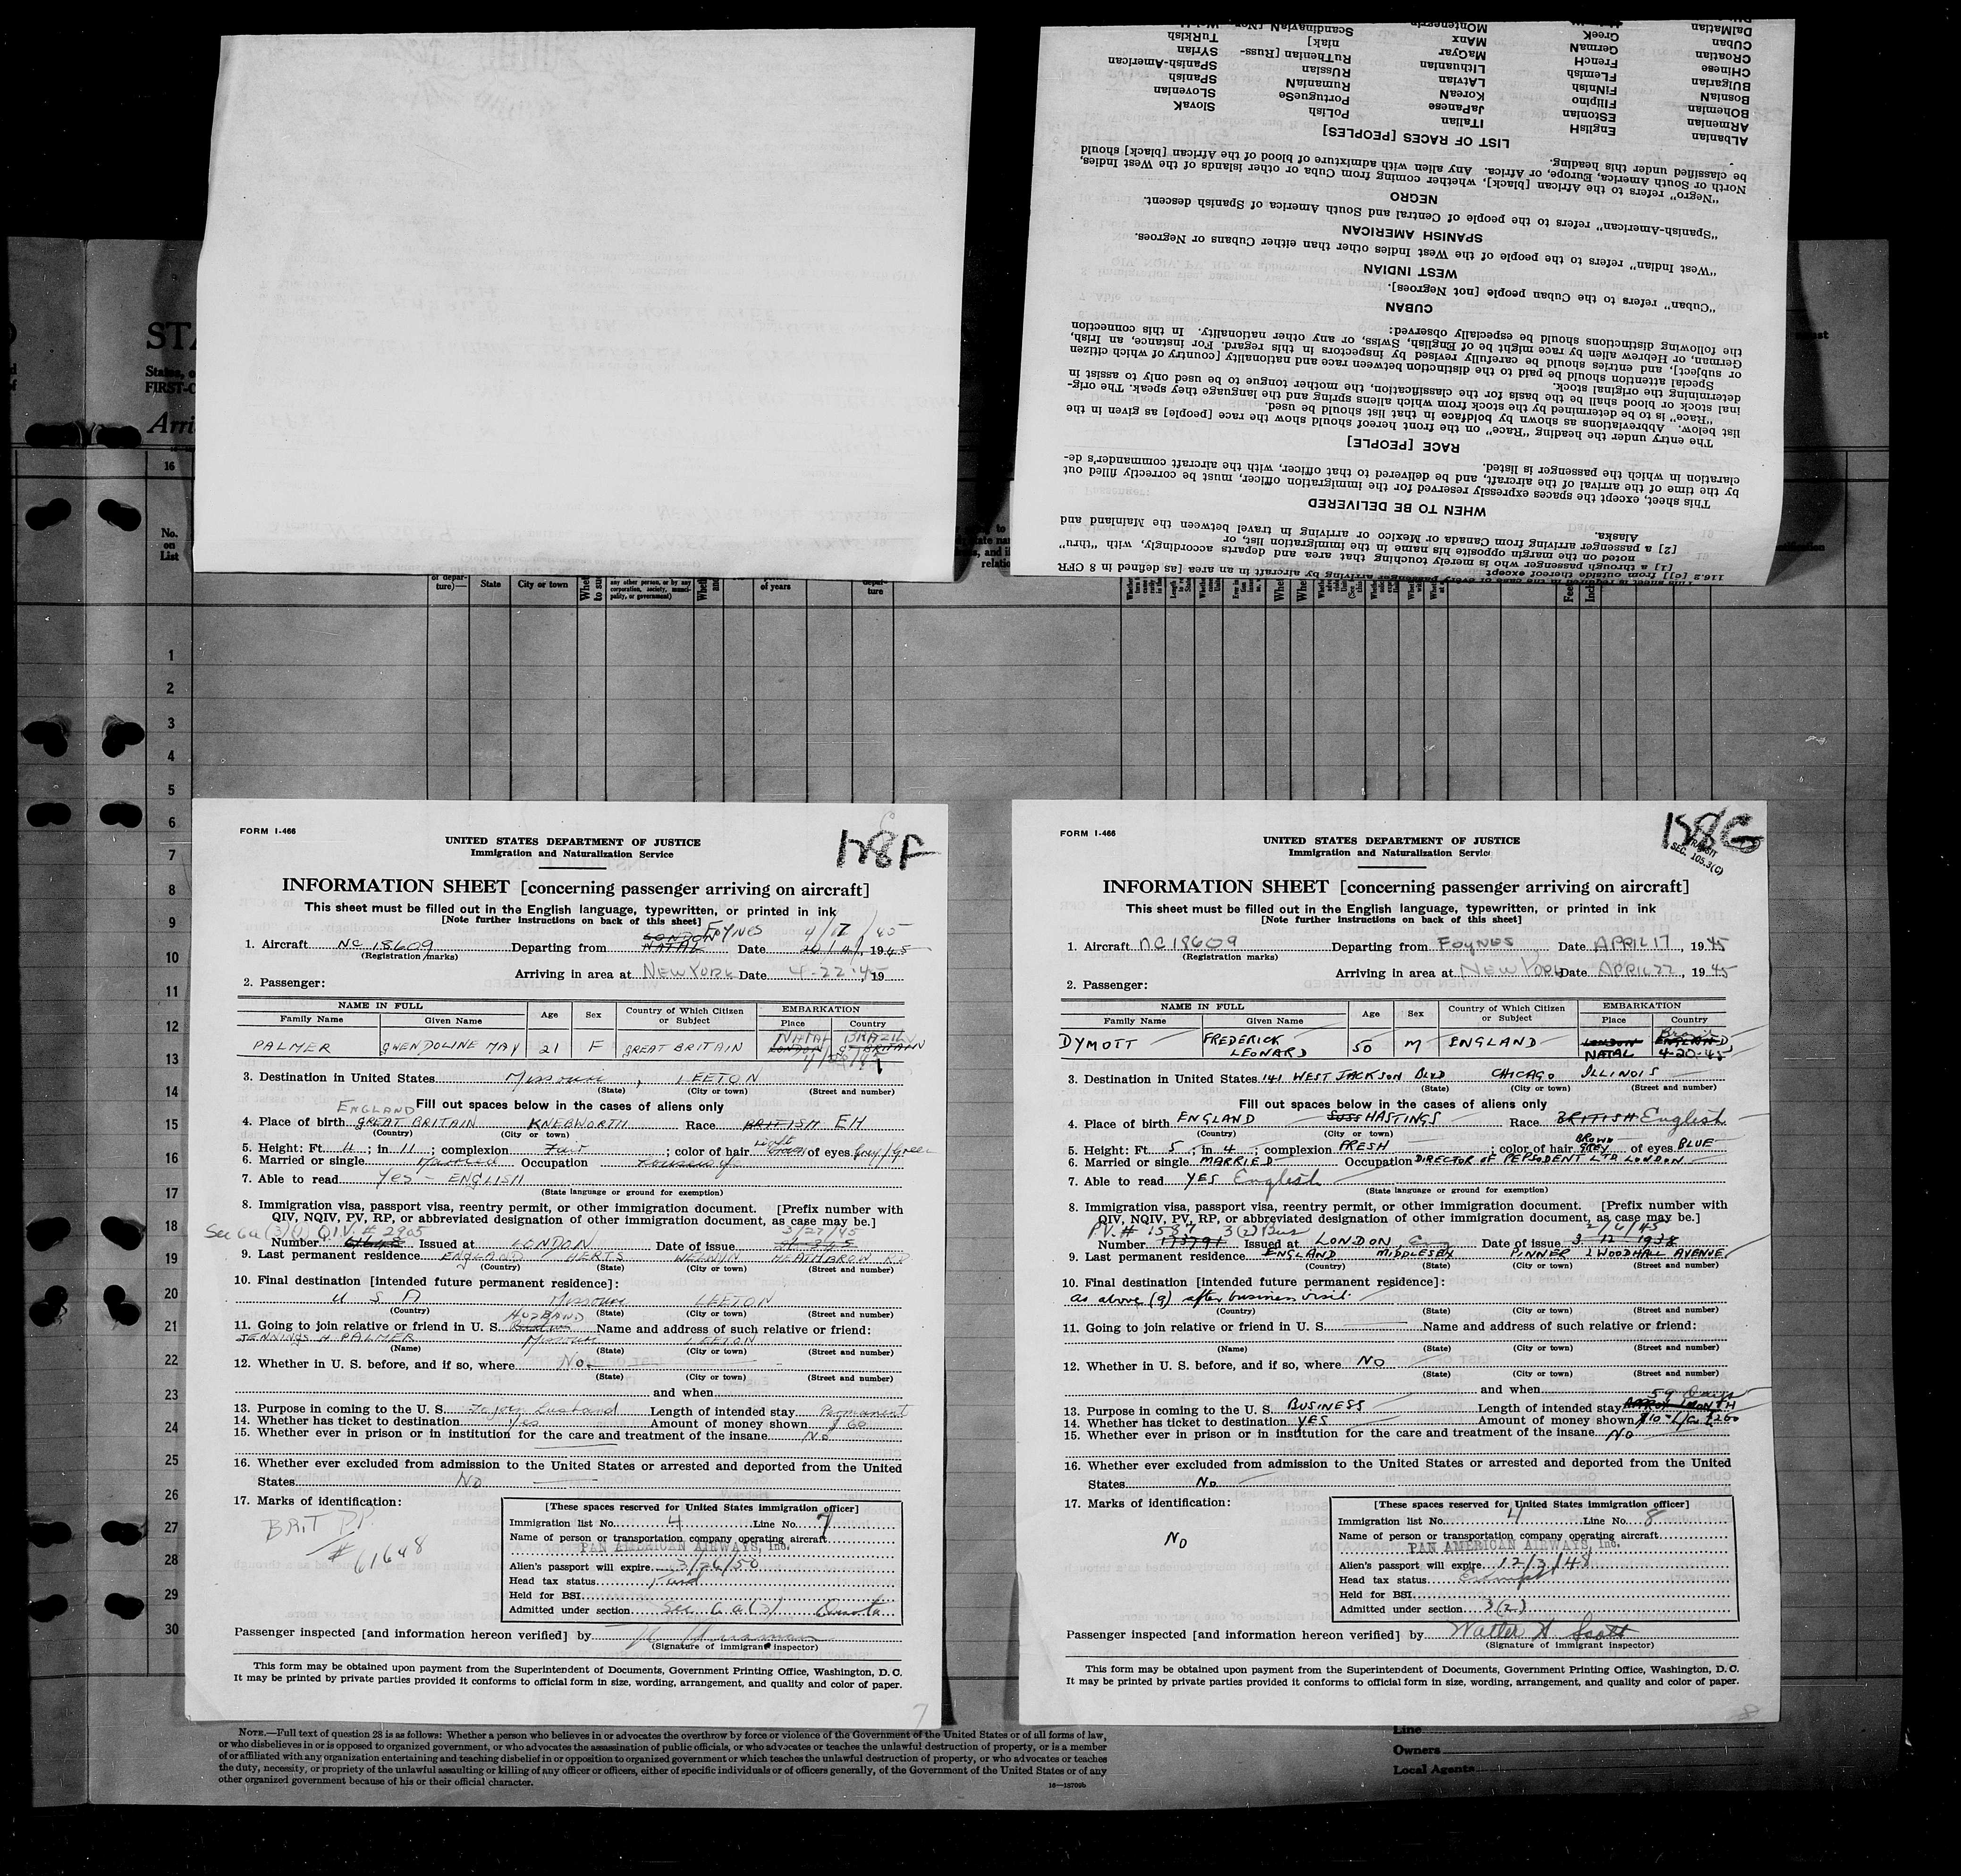 DalMatian GreeK MAnx
Cuban GermaN MaGyar niak] TuRkish
CRoatian FrencH LIthuanian RuThenian [Russ- SYrian
CHinese FLemish LAtvian RUssian SPanisH-American
BUlgarian FiNnish KoreaN RumaniaN SPanish
BosniaN Filipino JaPanese PortuguesSe SLovenian
BOHemian EStonian ITalian PoLish SlovaK
ARmenian EnglisH
ALbanian
LIST OF RACES [PEOPLES]
be classified under this heading.
North or South America, Europe, or Africa. Any alien with admixture of blood of the African [black] should
"Negro" refers to the African [black], whether coming from Cuba or other islands of the West Indies,
NEGRO
"Spanish-American" refers to the people of Central and South America of Spanish descent.
SPANISH AMERICAN
"West Indian" refers to the people of the West Indies other than either Cubans or Negroes.
WEST INDIAN
"Cuban" refers to the Cuban people [not Negroes].
CUBAN
the following distinctions should be especially observed:
German, or Hebrew alien by race might be of English, Swiss, or any other nationality. In this connection
or subject], and entries should be carefully revised by inspectors in this regard. For instance, an Irish,
Special attention should be paid to the distinction between race and nationality [country of which citizen
determining the original stock.
inal stock or blood shall be the basis for the classification, the mother tongue to be used only to assist in
"Race" is to be determined by the stock from which aliens spring and the language they speak. The orig-
list below. Abbreviations as shown by boldface in that list should be used.
The entry under the heading "Race" on the front hereof should show the race [people] as given in the
RACE [PEOPLE]
claration in which the passenger is listed.
by the time of the arrival of the aircraft, and be delivered to that officer, with the aircraft commander's de-
This sheet, except the spaces expressly reserved for the immigration officer, must be correctly filled out
WHEN TO BE DELIVERED
Alaska.
[2] a passenger arriving from Canada or Mexico or arriving in travel between the Mainland and
noted on the margin opposite his name in the immigration list, or
[1] a through passenger who is merely touching that area and departs accordingly, with "thru"
116.2 [c]] from outside thereof except
This sheet is required in the case of every passenger arriving by aircraft in an area [as defined in 8 CFR
STA
States,
FIRST-C
Arri
16
No.
on
List
of depar-
ture)—
State
City or town
any other person, or by any
corporation, society, munici-
pality, or government)
of years
depar-
ture
1
2
3
4
5
6
7
8
9
10
11
12
13
14
15
16
17
18
19
20
21
22
23
24
25
26
27
28
29
30
FORM I-466
178F
UNITED STATES DEPARTMENT OF JUSTICE
Immigration and Naturalization Service
INFORMATION SHEET [concerning passenger arriving on aircraft]
This sheet must be filled out in the English language, typewritten, or printed in ink
[Note further instructions on back of this sheet]
LONDON FOYNES 4/17/45
1. Aircraft NC 18609 Departing from NATAL Date 1945
(Registration marks)
Arriving in area at NEW YORK Date 4-22-45, 19
2. Passenger:
NAME IN FULL Age Sex Country of Which Citizen or Subject EMBARKATION
Family Name Given Name Place Country
NATAL BRAZIL
PALMER GWENDOLINE MAY 21 F GREAT BRITAIN LONDON GT BRITAIN
3. Destination in United States Missouri, LEETON
(State) (City or town) (Street and number)
ENGLAND Fill out spaces below in the cases of aliens only
4. Place of birth GREAT BRITAIN KNEBWORTH Race BRITISH EH
(Country) (City or town)
5. Height: Ft. 4; in 11; complexion Fair; color of hair light of eyes Grey/Green
6. Married or single Married Occupation Housewife
7. Able to read Yes - ENGLISH
(State language or ground for exemption)
8. Immigration visa, passport visa, reentry permit, or other immigration document. [Prefix number with
QIV, NQIV, PV, RP, or abbreviated designation of other immigration document, as case may be.]
See 6a(3)(1) Q.I.V. # 2905 3/27/45
Number 61648 Issued at LONDON Date of issue
9. Last permanent residence ENGLAND HERTS WELWYN HEATHARON RD
(Country) (State) (City or town) (Street and number)
10. Final destination [intended future permanent residence]:
U S A Missouri LEETON
(Country) (State) (City or town) (Street and number)
HUSBAND
11. Going to join relative or friend in U. S. Name and address of such relative or friend:
JENNINGS H PALMER Missouri LEETON
(Name) (State) (City or town) (Street and number)
12. Whether in U. S. before, and if so, where No.
(State) (City or town) (Street and number)
and when
13. Purpose in coming to the U. S. To join husband Length of intended stay Permanent
14. Whether has ticket to destination Yes Amount of money shown 60
15. Whether ever in prison or in institution for the care and treatment of the insane No
16. Whether ever excluded from admission to the United States or arrested and deported from the United
States No
17. Marks of identification:
BRIT P.P.
# 61648
[These spaces reserved for United States immigration officer]
Immigration list No. 4 Line No. 7
Name of person or transportation company operating aircraft
PAN AMERICAN AIRWAYS, Inc.
Alien's passport will expire 3/26/50
Head tax status Paid
Held for BSI
Admitted under section Sec 6 a(3) Quota
Passenger inspected [and information hereon verified] by
(Signature of immigrant inspector)
This form may be obtained upon payment from the Superintendent of Documents, Government Printing Office, Washington, D. C.
It may be printed by private parties provided it conforms to official form in size, wording, arrangement, and quality and color of paper.
7
FORM I-466
178G
TRANSIT
SEC. 105.3(C)
UNITED STATES DEPARTMENT OF JUSTICE
Immigration and Naturalization Service
INFORMATION SHEET [concerning passenger arriving on aircraft]
This sheet must be filled out in the English language, typewritten, or printed in ink
[Note further instructions on back of this sheet]
1. Aircraft NC18609 Departing from FOYNES Date APRIL 17, 1945
(Registration marks)
Arriving in area at NEW YORK Date APRIL 22, 1945
2. Passenger:
NAME IN FULL Age Sex Country of Which Citizen or Subject EMBARKATION
Family Name Given Name Place Country
DYMOTT FREDERICK LEONARD 50 M ENGLAND LONDON ENGLAND
NATAL 4-20-45
3. Destination in United States 141 WEST JACKSON BLVD CHICAGO ILLINOIS
(State) (City or town) (Street and number)
Fill out spaces below in the cases of aliens only
4. Place of birth ENGLAND SUSS HASTINGS Race BRITISH English
(Country) (City or town)
5. Height: Ft. 5; in 4; complexion FRESH; color of hair BROWN GREY of eyes BLUE
6. Married or single MARRIED Occupation DIRECTOR OF PEPSODENT LTD LONDON
7. Able to read YES English
(State language or ground for exemption)
8. Immigration visa, passport visa, reentry permit, or other immigration document. [Prefix number with
QIV, NQIV, PV, RP, or abbreviated designation of other immigration document, as case may be.]
P.V. # 1587 3(2) Bus 2/6/45
Number Issued at LONDON, Eng Date of issue 3 12 1938
9. Last permanent residence ENGLAND MIDDLESEX PINNER 2 WOODHALL AVENUE
(Country) (State) (City or town) (Street and number)
10. Final destination [intended future permanent residence]:
As above (9) after business visit.
(Country) (State) (City or town) (Street and number)
11. Going to join relative or friend in U. S. Name and address of such relative or friend:
(Name) (State) (City or town) (Street and number)
12. Whether in U. S. before, and if so, where NO
(State) (City or town) (Street and number)
and when
59 Days
13. Purpose in coming to the U. S. BUSINESS Length of intended stay MONTH
14. Whether has ticket to destination YES Amount of money shown
15. Whether ever in prison or in institution for the care and treatment of the insane No
16. Whether ever excluded from admission to the United States or arrested and deported from the United
States No
17. Marks of identification:
NO
[These spaces reserved for United States immigration officer]
Immigration list No. 4 Line No. 8
Name of person or transportation company operating aircraft
PAN AMERICAN AIRWAYS, Inc.
Alien's passport will expire 12/3/48
Head tax status Exempt
Held for BSI
Admitted under section 3(2)
Passenger inspected [and information hereon verified] by Walter H. Scott
(Signature of immigrant inspector)
This form may be obtained upon payment from the Superintendent of Documents, Government Printing Office, Washington, D. C.
It may be printed by private parties provided it conforms to official form in size, wording, arrangement, and quality and color of paper.
8
NOTE.—Full text of question 28 is as follows: Whether a person who believes in or advocates the overthrow by force or violence of the Government of the United States or of all forms of law,
or who disbelieves in or is opposed to organized government, or who advocates the assassination of public officials, or who advocates or teaches the unlawful destruction of property, or is a member
of or affiliated with any organization entertaining and teaching disbelief in or opposition to organized government or which teaches the unlawful destruction of property, or who advocates or teaches
the duty, necessity, or propriety of the unlawful assaulting or killing of any officer or officers, either of specific individuals or of officers generally, of the Government of the United States or of any
other organized government because of his or their official character.
16—18709b
Line
Owners
Local Agents